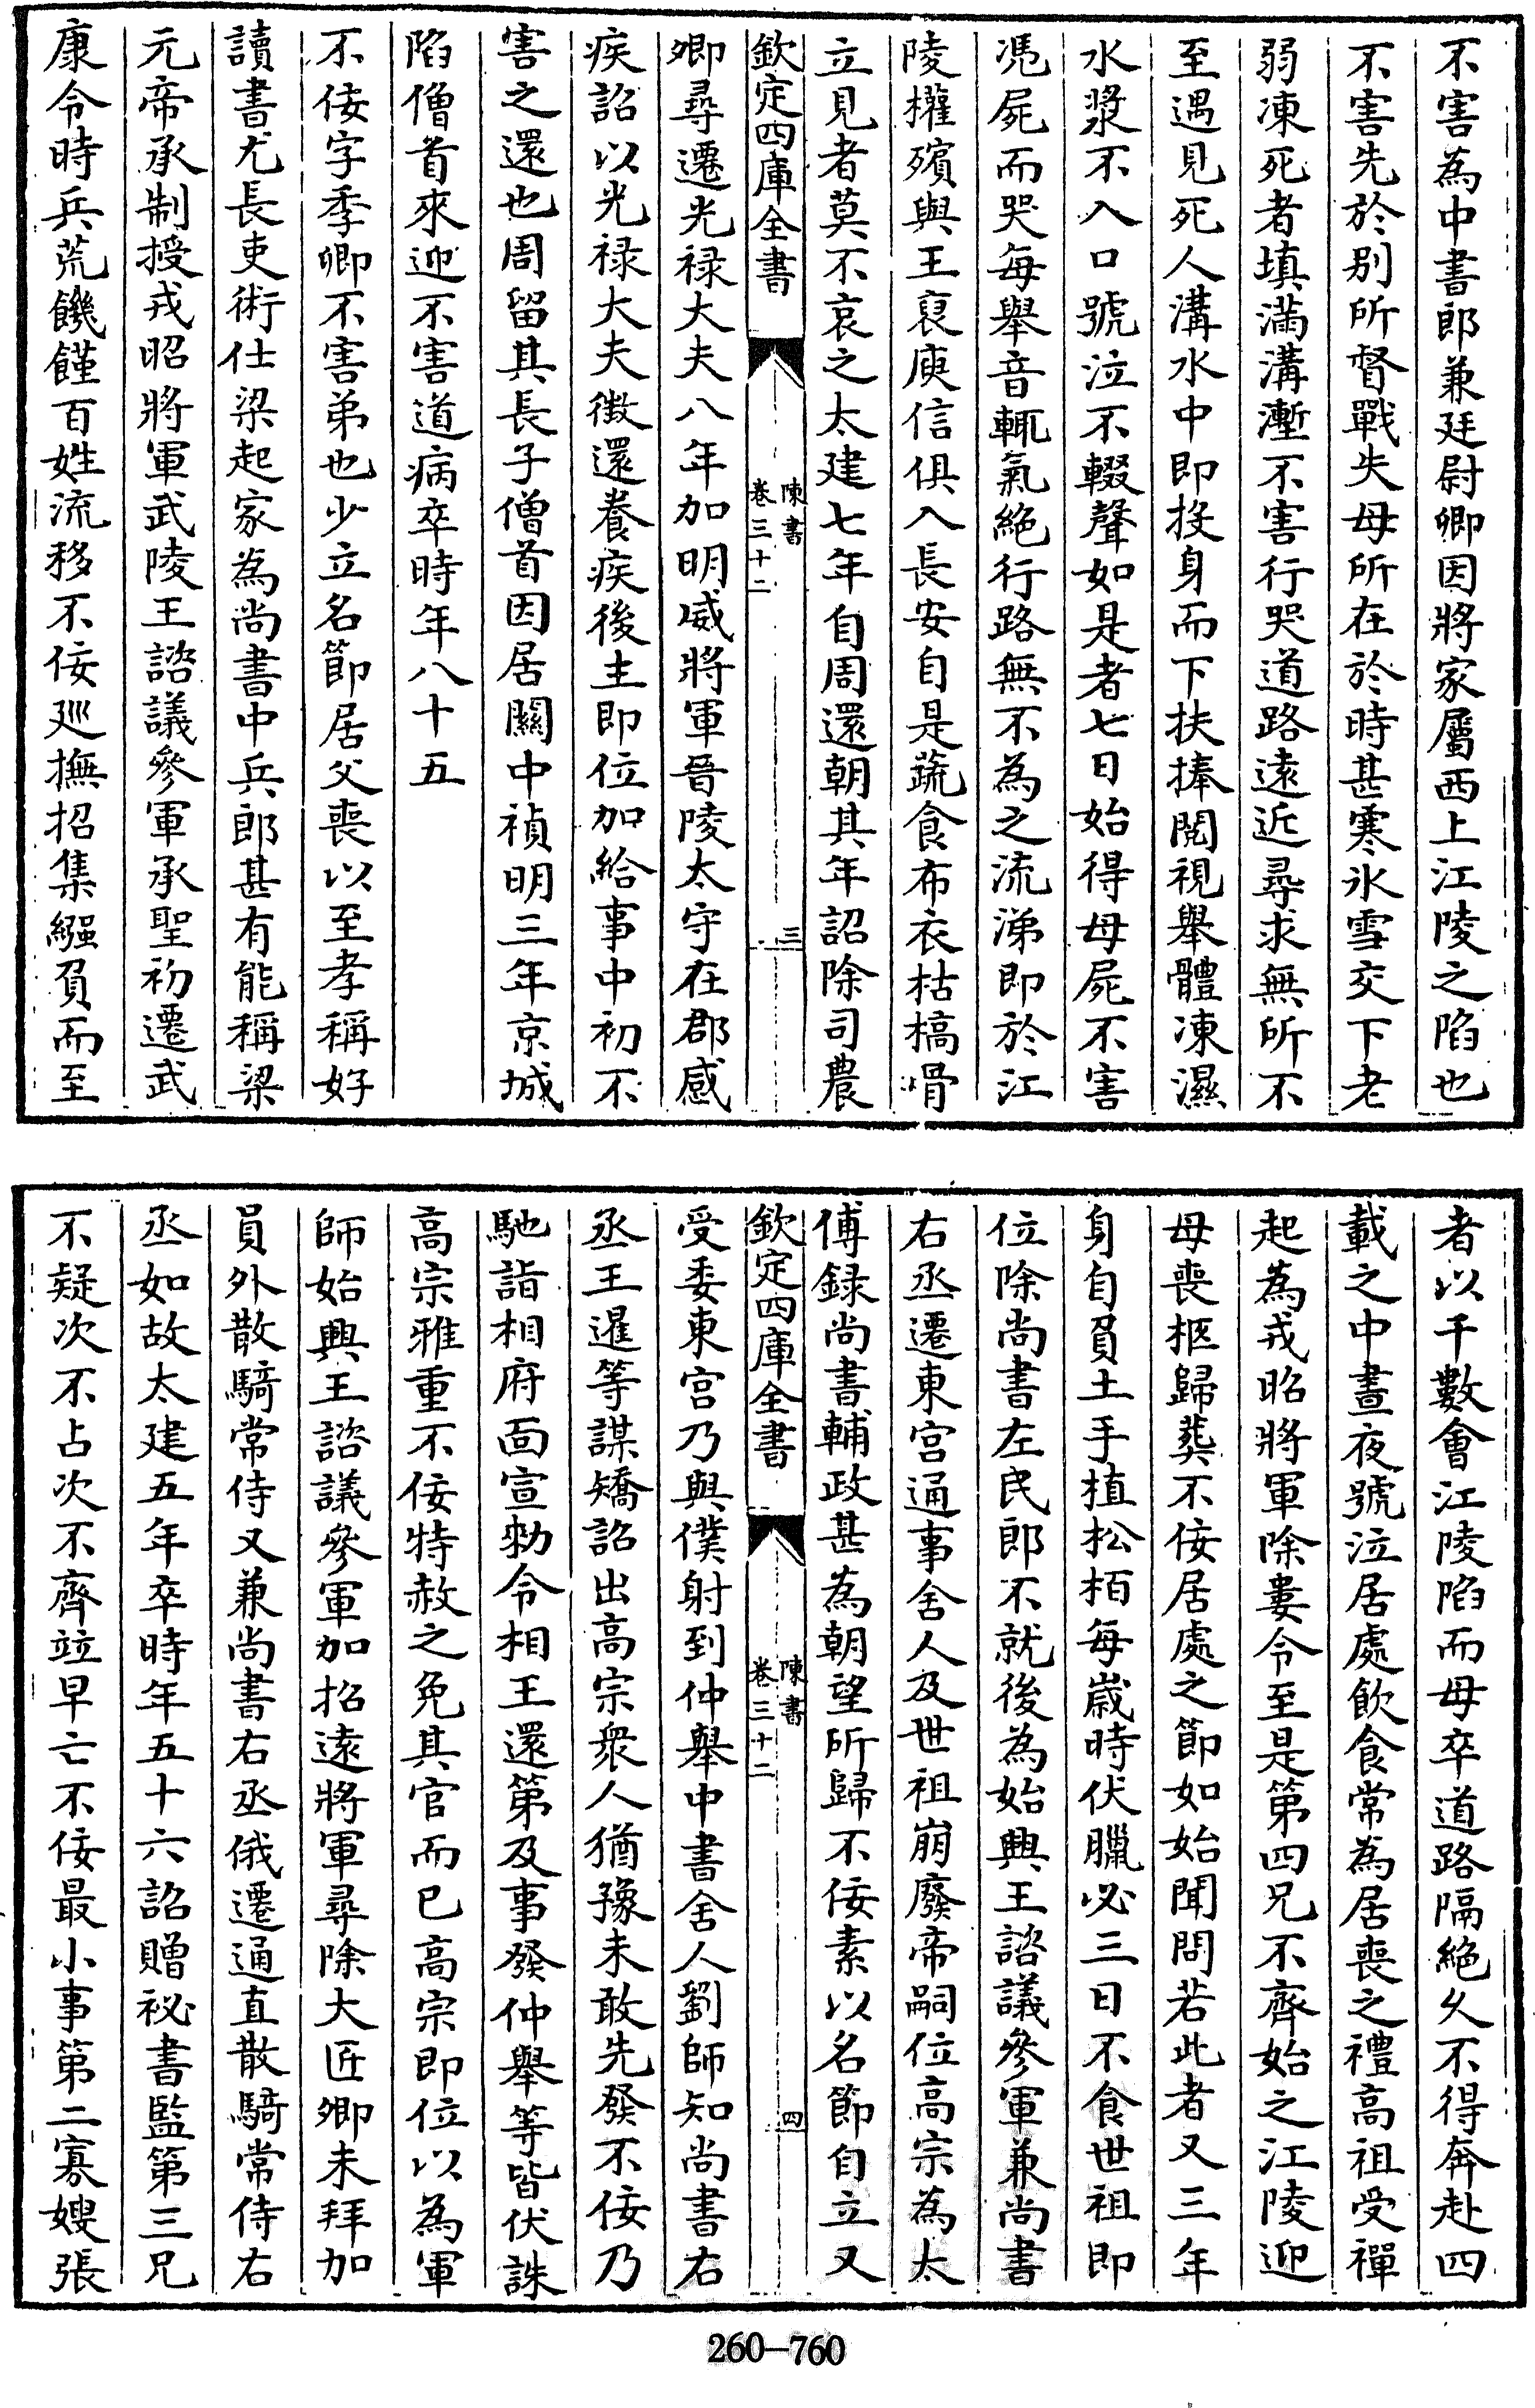 不害為中書郎兼廷尉卿因將家屬西上江陵之陷也
不害先於别所督戰失母所在於時甚寒氷雪交下老
弱凍死者填滿溝壍不害行哭道路遠近尋求無所不
至遇見死人溝水中即投身而下扶捧閱視舉體凍濕
水漿不入口號泣不輟聲如是者七日始得母屍不害
憑屍而哭每舉音輒氣絶行路無不為之流涕即於江
陵權殯與王裒庾信俱入長安自是蔬食布衣枯槁骨
立見者莫不哀之太建七年自周還朝其年詔除司農
欽定四庫全書
陳書
卷三十二
三
卿尋遷光禄大夫八年加明威將軍晉陵太守在郡感
疾詔以光禄大夫徵還養疾後主即位加給事中初不
害之還也周留其長子僧首因居關中禎明三年京城
陷僧首來迎不害道病卒時年八十五
不佞字季卿不害弟也少立名節居父喪以至孝稱好
讀書尤長吏術仕梁起家為尚書中兵郎甚有能稱梁
元帝承制授戎昭將軍武陵王諮議參軍承聖初遷武
康令時兵荒饑饉百姓流移不佞廵撫招集繈負而至
者以千數會江陵陷而母卒道路隔絶久不得奔赴四
載之中晝夜號泣居處飲食常為居喪之禮高祖受禪
起為戎昭將軍除婁令至是第四兄不齊始之江陵迎
母喪柩歸葬不佞居處之節如始聞問若此者又三年
身自負土手植松栢每嵗時伏臘必三日不食世祖即
位除尚書左民郎不就後為始興王諮議參軍兼尚書
右丞遷東宫通事舍人及世祖崩廢帝嗣位高宗為太
傅録尚書輔政甚為朝望所歸不佞素以名節自立又
欽定四庫全書
陳書
卷三十二
四
受委東宫乃與僕射到仲舉中書舍人劉師知尚書右
丞王暹等謀矯詔出高宗衆人猶豫未敢先發不佞乃
馳詣相府面宣勑令相王還第及事發仲舉等皆伏誅
高宗雅重不佞特赦之免其官而已高宗即位以為軍
師始興王諮議參軍加招遠將軍尋除大匠卿未拜加
員外散騎常侍又兼尚書右丞俄遷通直散騎常侍右
丞如故太建五年卒時年五十六詔贈祕書監第三兄
不疑次不占次不齊竝早亡不佞最小事第二寡嫂張
260-760